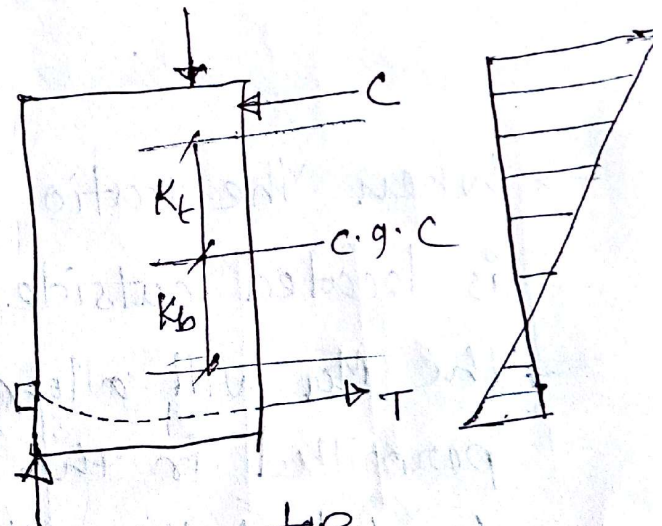 C
Kt
c.g.c
Kb
T